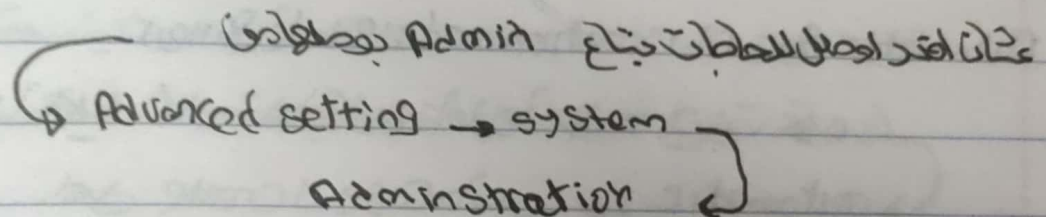 عشان اقدر اوصل للحاجات بتاع Admin
Advanced setting → system
Adminstration